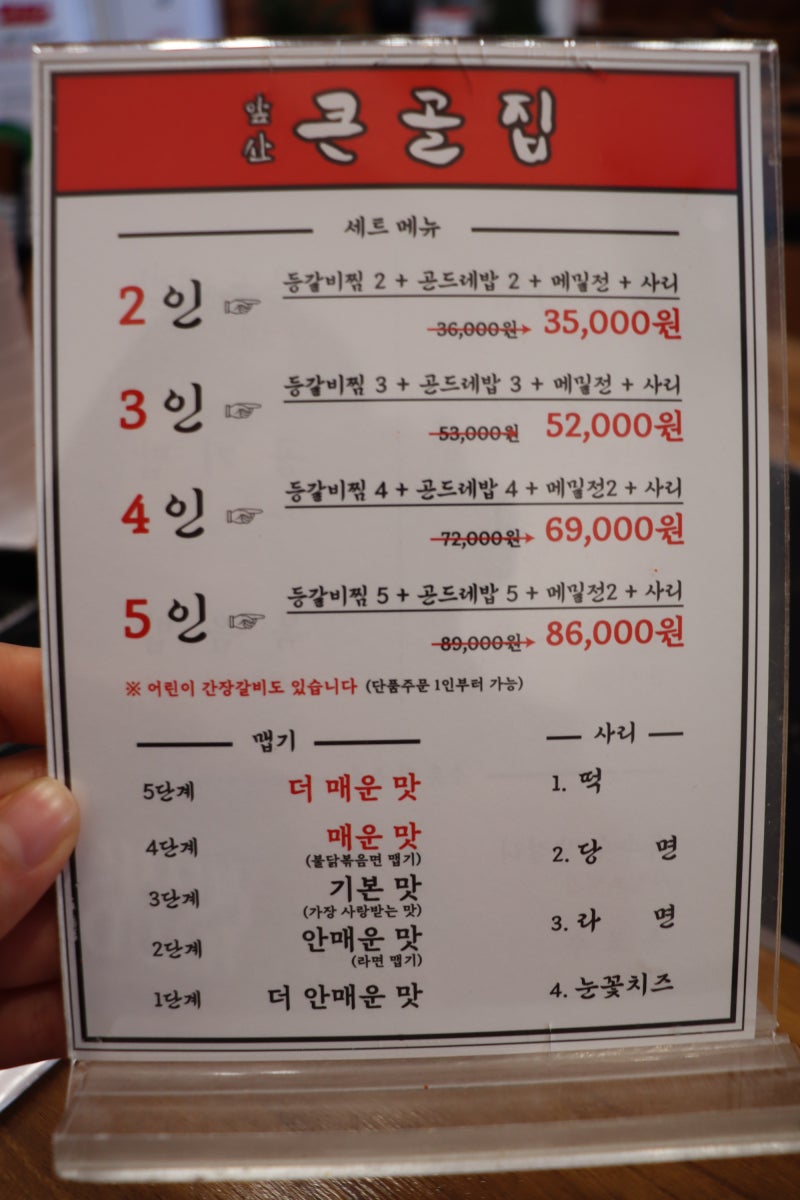 앞산 큰골집
세트 메뉴
2인 ☞ 등갈비찜 2 + 곤드레밥 2 + 메밀전 + 사리
36,000원 35,000원
3인 ☞ 등갈비찜 3 + 곤드레밥 3 + 메밀전 + 사리
53,000원 52,000원
4인 ☞ 등갈비찜 4 + 곤드레밥 4 + 메밀전2 + 사리
72,000원 69,000원
5인 ☞ 등갈비찜 5 + 곤드레밥 5 + 메밀전2 + 사리
89,000원 86,000원
※ 어린이 간장갈비도 있습니다 (단품주문 1인부터 가능)
맵기
5단계 더 매운 맛
4단계 매운 맛
(불닭볶음면 맵기)
3단계 기본 맛
(가장 사랑받는 맛)
2단계 안매운 맛
(라면 맵기)
1단계 더 안매운 맛
사리
1. 떡
2. 당 면
3. 라 면
4. 눈꽃치즈